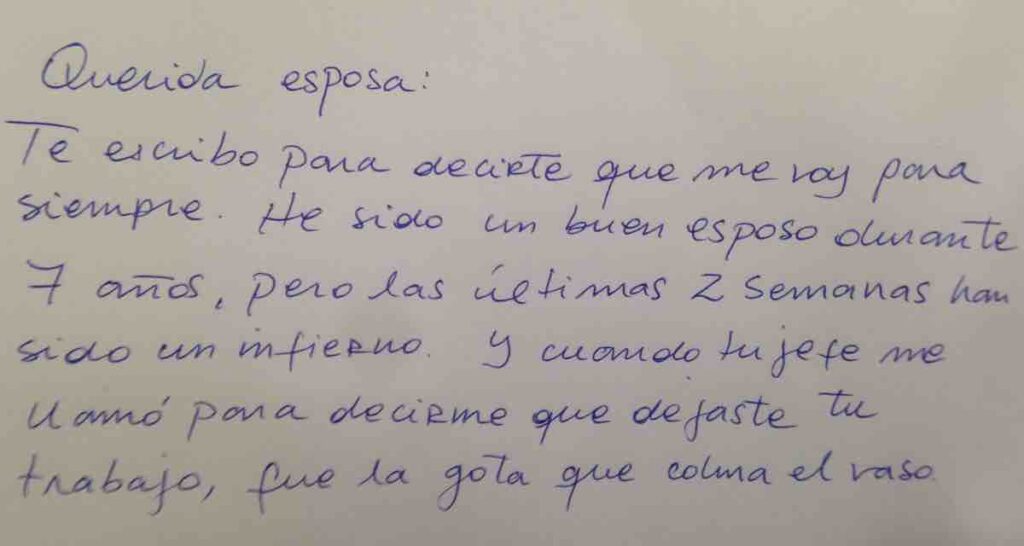 Querida esposa:
Te escribo para decirte que me voy para
siempre. He sido un buen esposo durante
7 años, pero las últimas 2 semanas han
sido un infierno. Y cuando tu jefe me
llamó para decirme que dejaste tu
trabajo, fue la gota que colma el vaso.